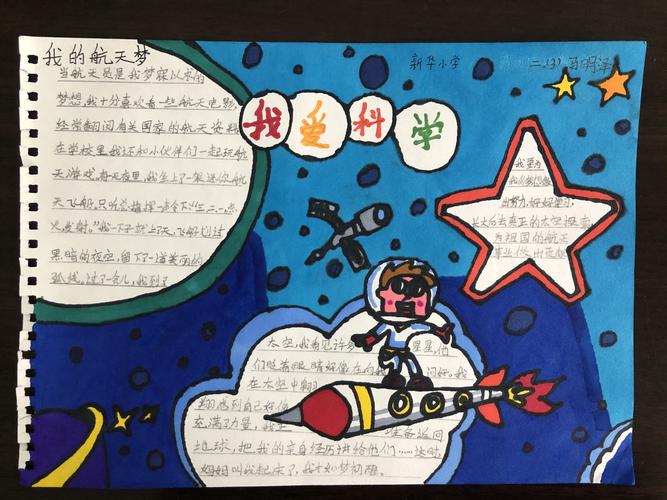 我的航天梦
新华小学
二、(3) 马明泽
当航天员是我梦寐以求的
梦想,我十分喜欢看一些航天电影,
经常翻阅有关国家的航天资料
在学校里我还和小伙伴们一起玩航
天游戏。有一天夜里,我坐上了一架迷你航
天飞船,只听总指挥一声令下“三、二、一、点
火发射。”我一下子就上了天,飞船划过
黑暗的夜空,留下了一道美丽的
弧线。过了一会儿,我到了
我爱科学
我要为
我的梦想做
出努力,好好学习,
长大后去真正的太空探索
为祖国的航天
事业做出贡献
太空,我看见许多星星,他
们眨着眼睛好像在向我问好。我
在太空中翱
翔感到自己好像
充满了力量,我正准备返回
地球,把我的亲身经历讲给他们……这时
妈妈叫我起床了,我才如梦初醒。